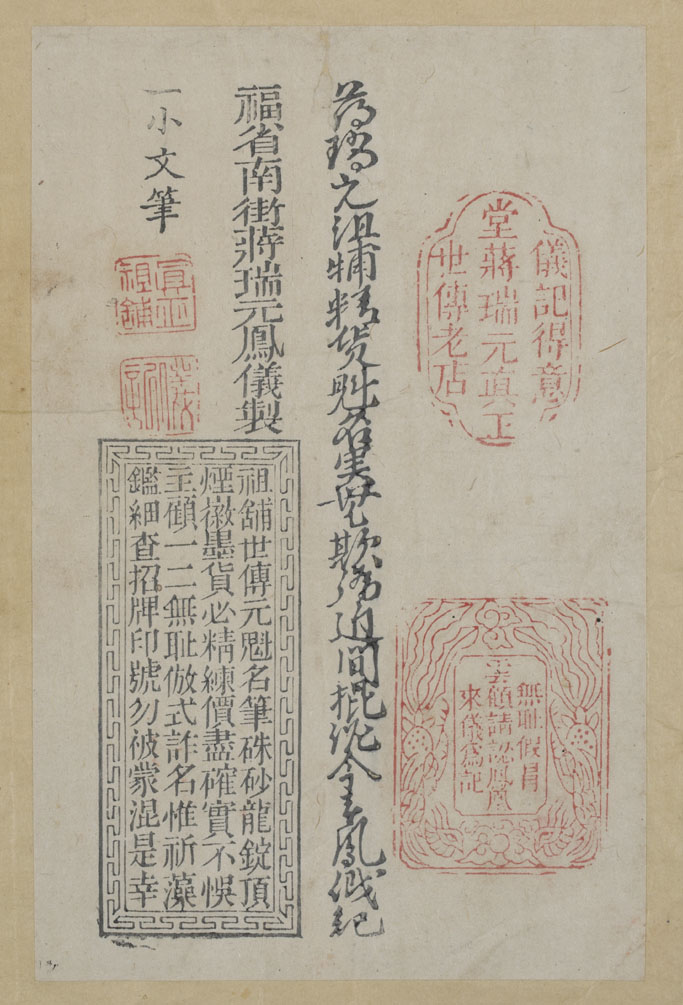 儀記得意
堂蔣瑞元真正
世傳老店
無耻假冐
顧請認鳳凰
來儀爲記
蔣瑞元祖舖精貨魁名 欺 鳳儀記
福省南街蔣瑞元鳳儀製
祖舖世傳元魁名筆硃砂龍錠頂
煙徽墨貨必精練價盡確實不悞
主顧一二無耻倣式詐名惟祈藻
鑑細查招牌印號勿被蒙混是幸
一小文筆
真正
祖舖
儀
記